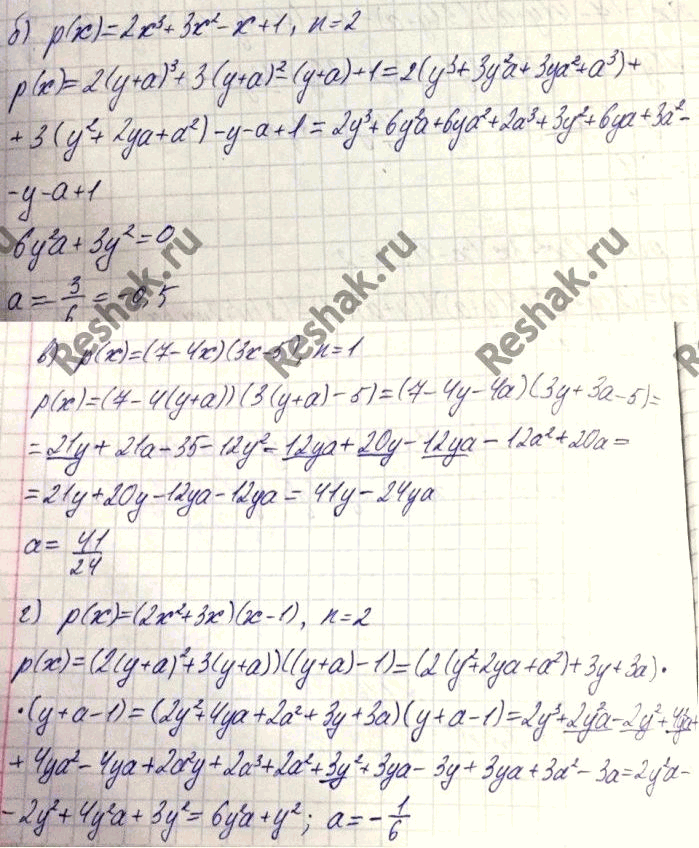 б) p(x)=2x³+3x²-x+1, n=2
p(x)=2(y+a)³+3(y+a)²-(y+a)+1=2(y³+3y²a+3ya²+a³)+
+3(y²+2ya+a²)-y-a+1=2y³+6y²a+6ya²+2a³+3y²+6ya+3a²-
-y-a+1
6y²a+3y²=0
a=-3/6=-0,5
в) p(x)=(7-4x)(3x-5), n=1
p(x)=(7-4(y+a))(3(y+a)-5)=(7-4y-4a)(3y+3a-5)=
=21y+21a-35-12y²-12ya+20y-12ya-12a²+20a=
=21y+20y-12ya-12ya=41y-24ya
a=41/24
г) p(x)=(2x²+3x)(x-1), n=2
p(x)=(2(y+a)²+3(y+a))((y+a)-1)=(2(y²+2ya+a²)+3y+3a)·
·(y+a-1)=(2y²+4ya+2a²+3y+3a)(y+a-1)=2y³+2y²a-2y²+4y²a+
+4ya²-4ya+2a²y+2a³+2a²+3y²+3ya-3y+3ya+3a²-3a=2y²a-
-2y²+4y²a+3y²=6y²a+y²; a=-1/6
Reshak.ru
Reshak.ru
Reshak.ru
Reshak.ru